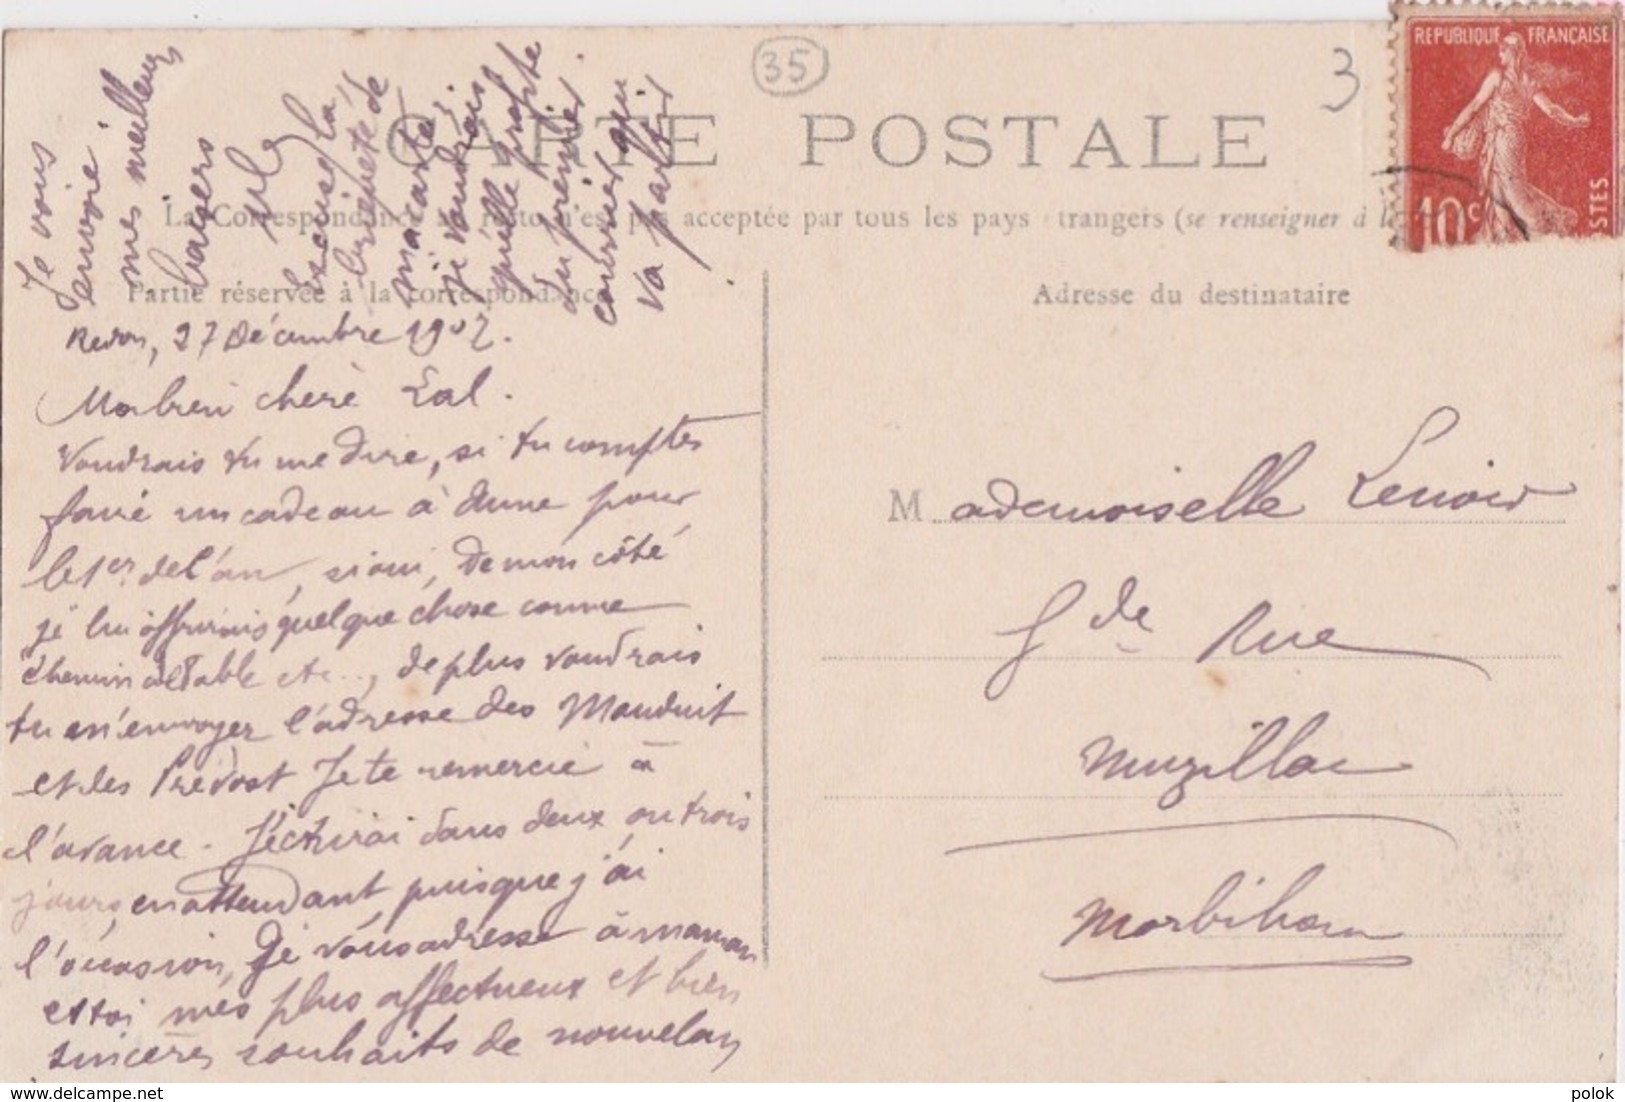 35
3
REPUBLIQUE FRANÇAISE
10c
POSTES
CARTE POSTALE
La Correspondance au recto n'est pas acceptée par tous les pays étrangers (se renseigner à la
Partie réservée à la correspondance
Adresse du destinataire
Redon, 27 Décembre 1907.
Ma bien chère Lal.
Voudrais tu me dire, si tu comptes
faire un cadeau à dune pour
le 1er de l'an, si oui, de mon côté
je lui offrirais quelque chose comme
chemin de table etc..., de plus voudrais
tu m'envoyer l'adresse des Mauduit
et des Prévost Je te remercie à
l'avance. J'écrirai dans deux ou trois
jours, en attendant, puisque j'ai
l'occasion, je vous adresse à maman
et toi mes plus affectueux et bien
sincères souhaits de nouvel an
Je vous
envoie
mes meilleurs
baisers
Excuse la
brièveté de
ma carte,
je voudrais
qu'elle profite
du premier
courrier qui
va partir
Mademoiselle Lenoir
Gde Rue
Muzillac
Morbihan
polok